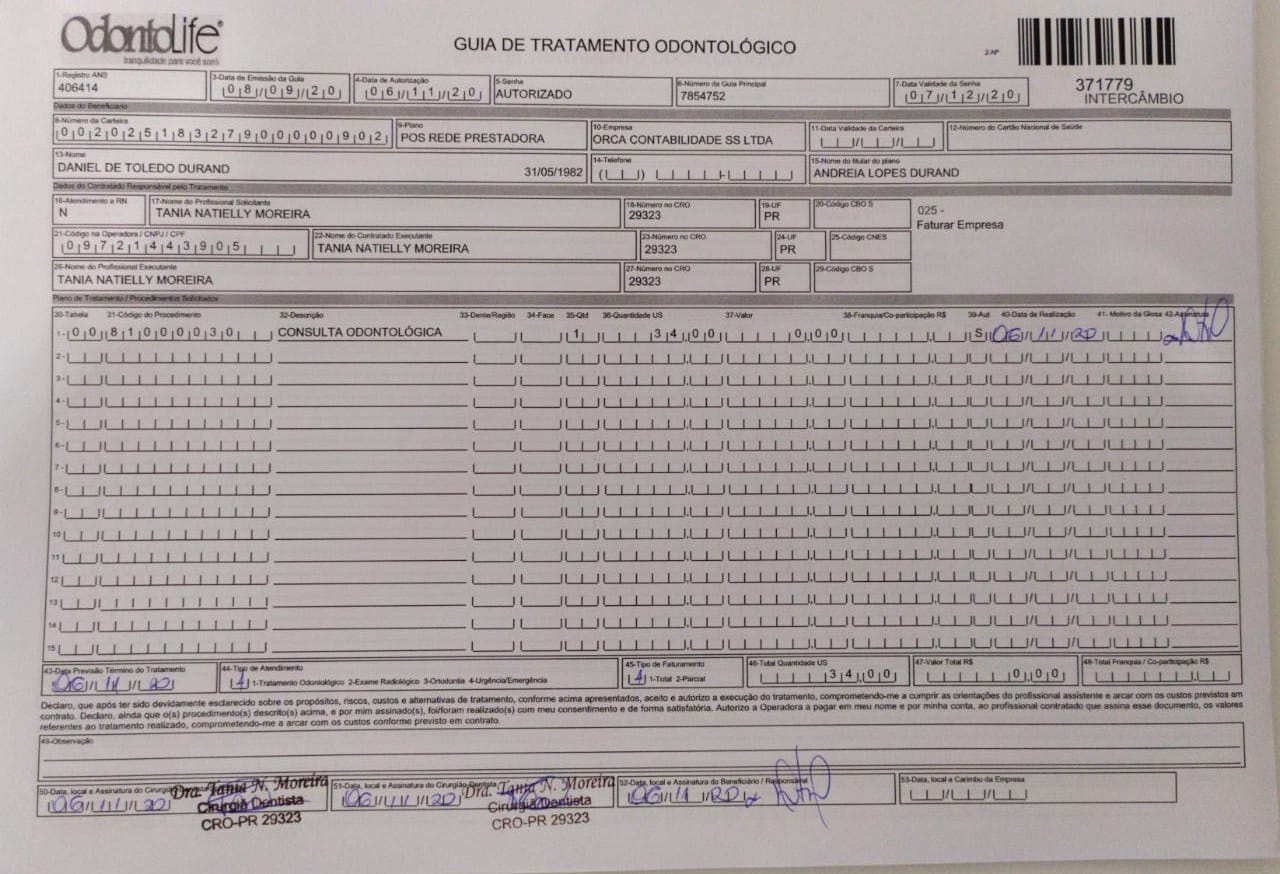 OdontoLife
tranquilidade para você sorrir
GUIA DE TRATAMENTO ODONTOLÓGICO
2-Nº
371779
INTERCÂMBIO
1-Registro ANS 3-Data de Emissão da Guia 4-Data de Autorização 5-Senha 6-Número da Guia Principal 7-Data Validade da Senha
406414 08/09/20 06/11/20 AUTORIZADO 7854752 07/12/20
Dados do Beneficiário
8-Número da Carteira 9-Plano 10-Empresa 11-Data Validade da Carteira 12-Número do Cartão Nacional de Saúde
00202518327900000902 POS REDE PRESTADORA ORCA CONTABILIDADE SS LTDA
13-Nome 14-Telefone 15-Nome do titular do plano
DANIEL DE TOLEDO DURAND 31/05/1982 ANDREIA LOPES DURAND
Dados do Contratado Responsável pelo Tratamento
16-Atendimento a RN 17-Nome do Profissional Solicitante 18-Número no CRO 19-UF 20-Código CBO S
N TANIA NATIELLY MOREIRA 29323 PR
025 -
Faturar Empresa
21-Código na Operadora / CNPJ / CPF 22-Nome do Contratado Executante 23-Número no CRO 24-UF 25-Código CNES
09721443905 TANIA NATIELLY MOREIRA 29323 PR
26-Nome do Profissional Executante 27-Número no CRO 28-UF 29-Código CBO S
TANIA NATIELLY MOREIRA 29323 PR
Plano de Tratamento / Procedimentos Solicitados
30-Tabela 31-Código do Procedimento 32-Descrição 33-Dente/Região 34-Face 35-Qtd 36-Quantidade US 37-Valor 38-Franquia/Co-participação R$ 39-Aut 40-Data de Realização 41- Motivo da Glosa 42-Assinatura
1- 00 81000030 CONSULTA ODONTOLÓGICA 1 34,00 0,00 S 06/11/20
2-
3-
4-
5-
6-
7-
8-
9-
10
11
12
13
14
15
43-Data Previsão Término do Tratamento 44-Tipo de Atendimento 45-Tipo de Faturamento 46-Total Quantidade US 47-Valor Total R$ 48-Total Franquia / Co-participação R$
06/11/20 1-Tratamento Odontológico 2-Exame Radiológico 3-Ortodontia 4-Urgência/Emergência 1-Total 2-Parcial 34,00 0,00
Declaro, que após ter sido devidamente esclarecido sobre os propósitos, riscos, custos e alternativas de tratamento, conforme acima apresentados, aceito e autorizo a execução do tratamento, comprometendo-me a cumprir as orientações do profissional assistente e arcar com os custos previstos em
contrato. Declaro, ainda que o(s) procedimento(s) descrito(s) acima, e por mim assinado(s), foi/foram realizado(s) com meu consentimento e de forma satisfatória. Autorizo a Operadora a pagar em meu nome e por minha conta, ao profissional contratado que assina esse documento, os valores
referentes ao tratamento realizado, comprometendo-me a arcar com os custos conforme previsto em contrato.
49-Observação
50-Data, local e Assinatura do Cirurgião 51-Data, local e Assinatura do Cirurgião Dentista 52-Data, local e Assinatura do Beneficiário / Responsável 53-Data, local e Carimbo da Empresa
06/11/20 Dra. Tania N. Moreira 06/11/20 Dra. Tania N. Moreira 06/11/20
Cirurgiã Dentista Cirurgiã Dentista
CRO-PR 29323 CRO-PR 29323